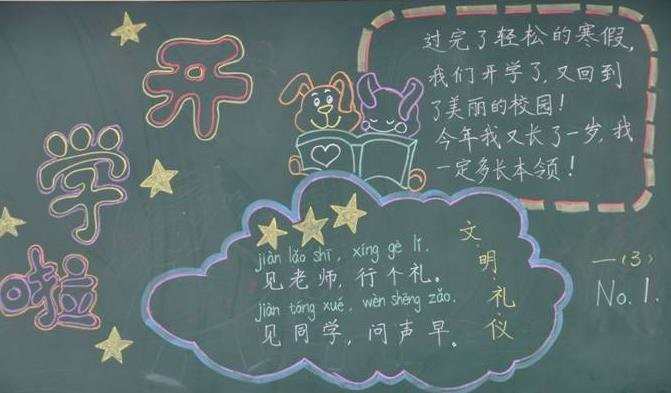 开学啦
过完了轻松的寒假,
我们开学了,又回到
了美丽的校园!
今年我又长了一岁,我
一定多长本领!
jiàn lǎo shī, xíng gè lǐ.
见老师,行个礼。
jiàn tóng xué, wèn shēng zǎo.
见同学,问声早。
文明礼仪
一(3)
No.1.